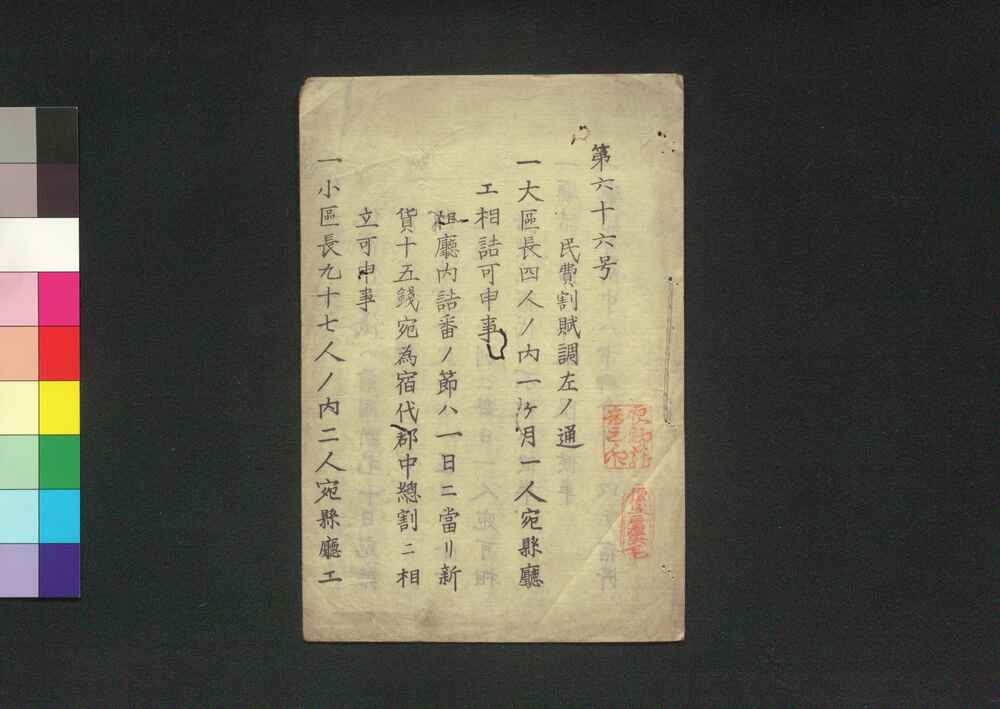 第六十六号
民費割賦調左ノ通
一大區長四人ノ内一ヶ月一人宛縣廳
エ相詰可申事
但廳内詰番ノ節ハ一日ニ當リ新
貨十五錢宛為宿代郡中總割ニ相
立可申事
一小區長九十七人ノ内二人宛縣廳エ